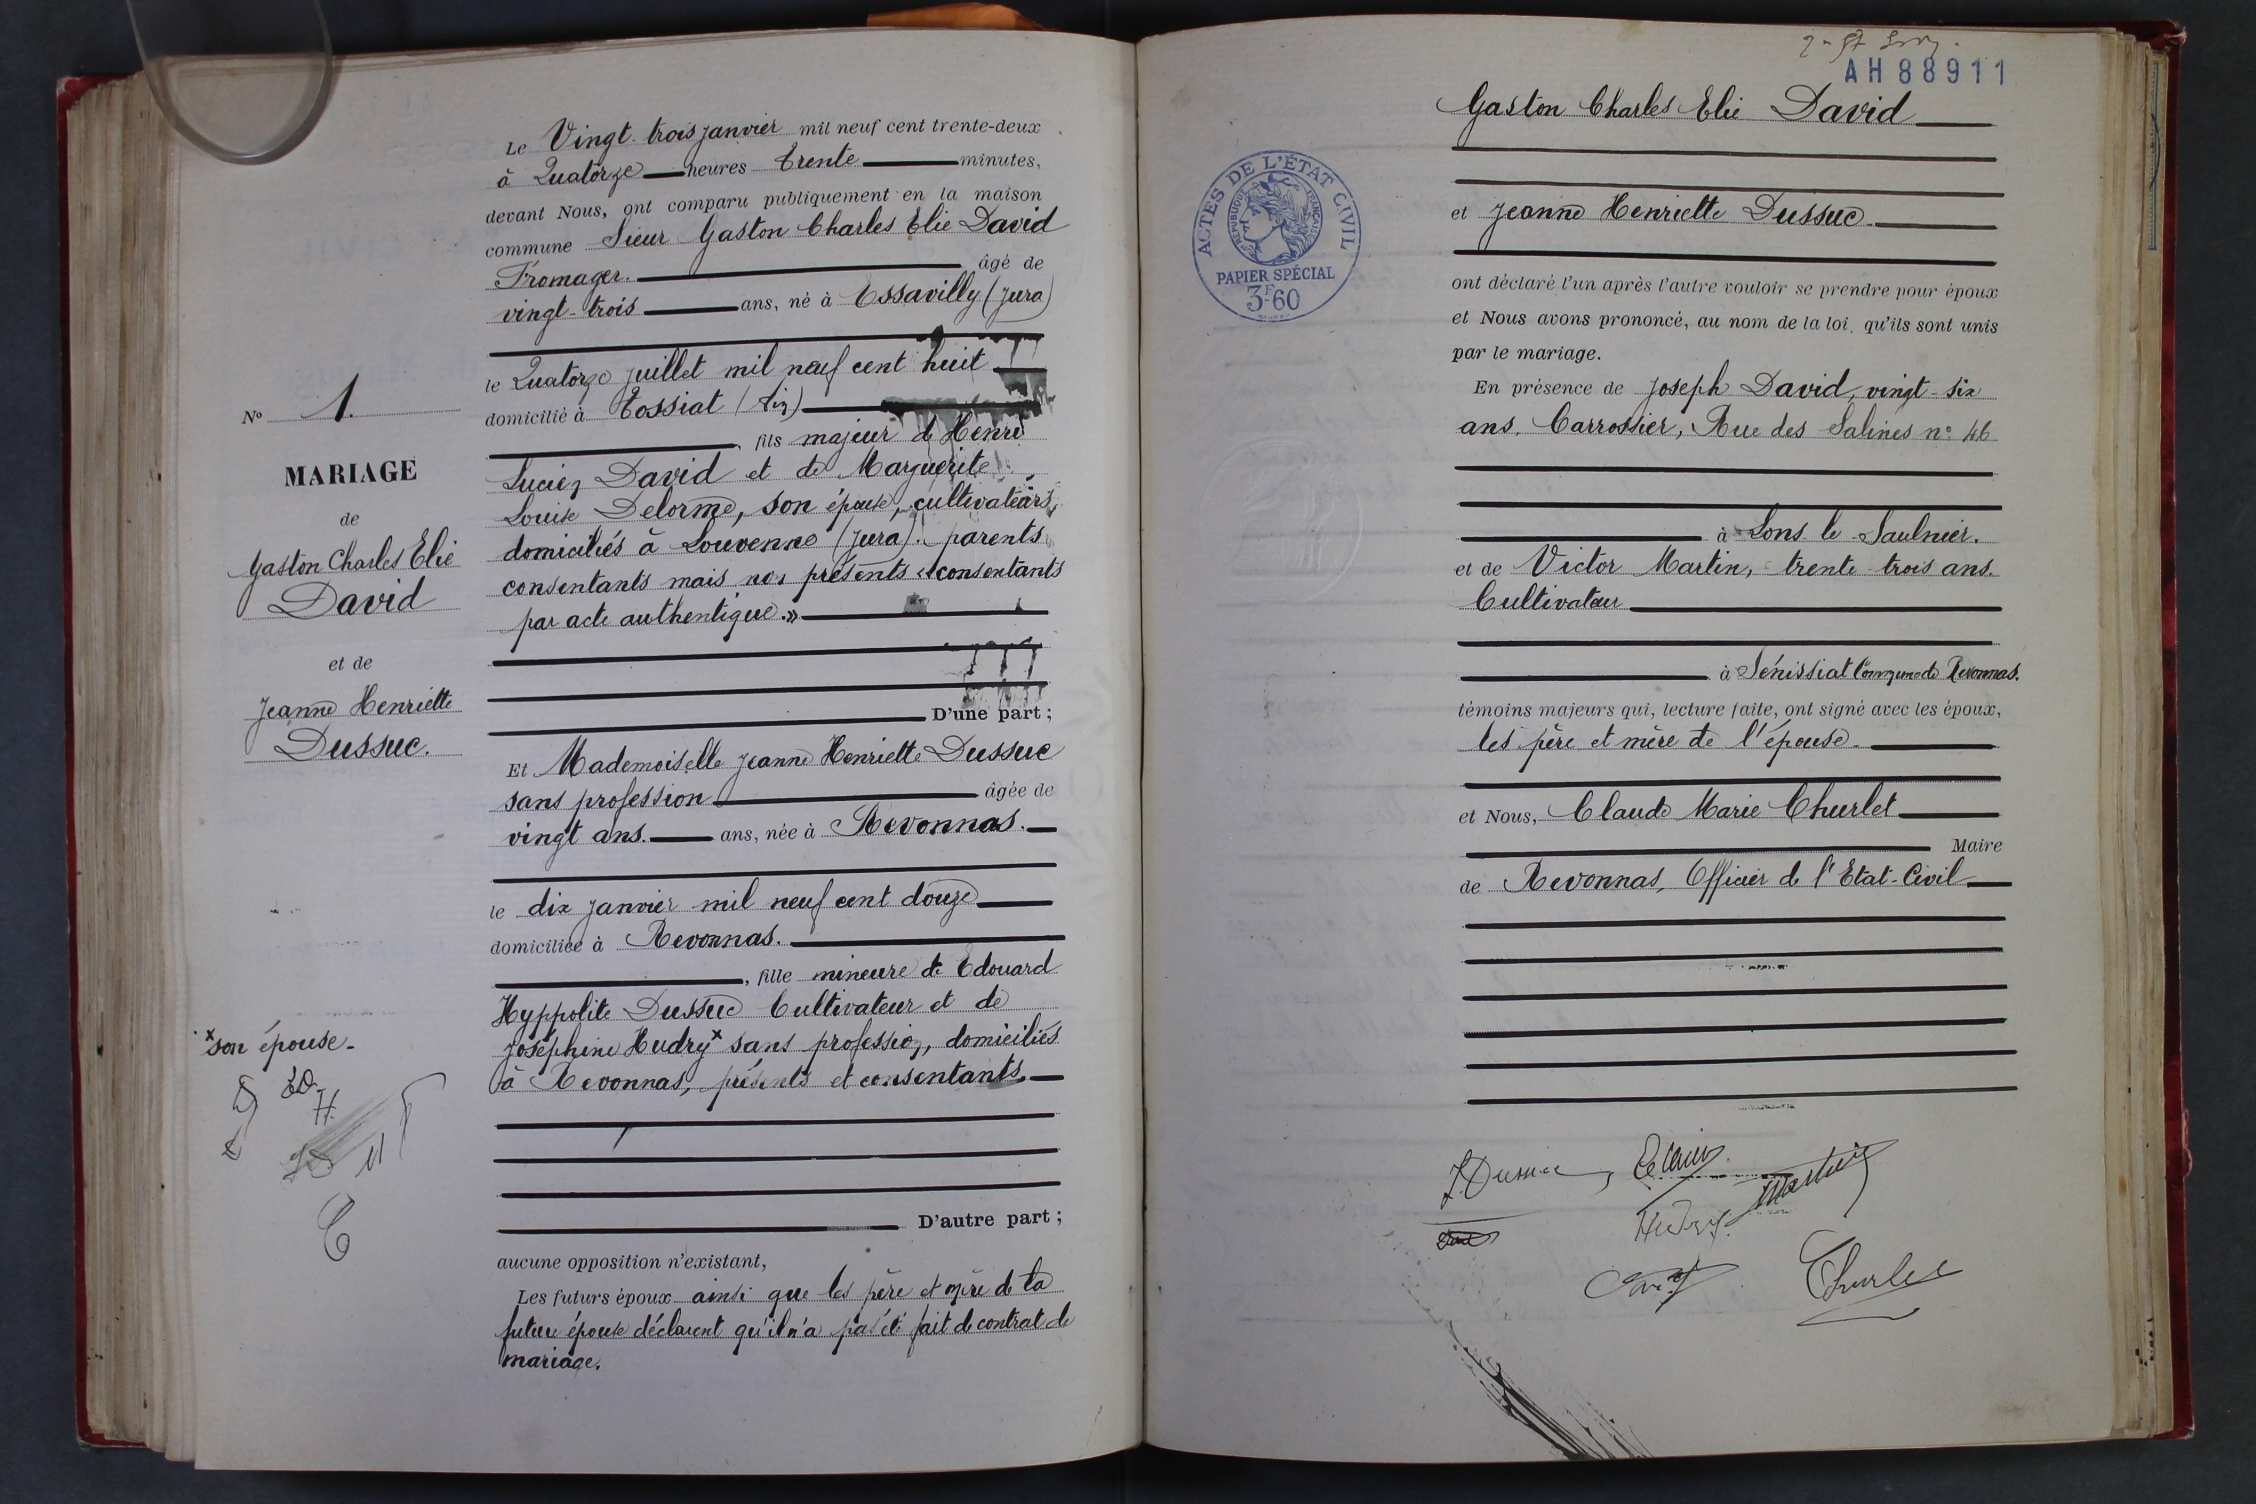 Le Vingt-trois janvier mil neuf cent trente-deux
à Quatorze heures trente minutes,
devant Nous, ont comparu publiquement en la maison
commune Sieur Gaston Charles Elie David
Fromager. âgé de
vingt-trois ans, né à Essavilly (Jura)
le Quatorze juillet mil neuf cent huit
domicilié à Tossiat (Ain)
, fils majeur de Henri
Lucien David et de Marguerite
Louise Delorme, son épouse, cultivateurs,
domiciliés à Louvenne (Jura). parents
consentants mais non présents « consentants
par acte authentique.»
D'une part ;
Et Mademoiselle Jeanne Henriette Dussuc
sans profession âgée de
vingt ans. ans, née à Revonnas.
le dix janvier mil neuf cent douze
domiciliée à Revonnas.
, fille mineure de Edouard
Hyppolite Dussuc Cultivateur et de
Joséphine Hudry x sans profession, domiciliés
à Revonnas, présents et consentants
D'autre part ;
aucune opposition n'existant,
Les futurs époux ainsi que les père et mère de la
future épouse déclarent qu'il n'a pas été fait de contrat de
mariage.
No 1.
MARIAGE
de
Gaston Charles Elie
David
et de
Jeanne Henriette
Dussuc.
x son épouse-
ED
H.
AH88911
Gaston Charles Elie David
et Jeanne Henriette Dussuc
ACTES DE L'ÉTAT CIVIL
RÉPUBLIQUE FRANÇAISE
PAPIER SPÉCIAL
3F60
ont déclaré l'un après l'autre vouloir se prendre pour époux
et Nous avons prononcé, au nom de la loi, qu'ils sont unis
par le mariage.
En présence de Joseph David, vingt-six
ans. Carrossier, Rue des Salines n° 46
à Lons le Saulnier.
et de Victor Martin, trente-trois ans.
Cultivateur
à Sénissiat Commune de Revonnas.
témoins majeurs qui, lecture faite, ont signé avec les époux,
les père et mère de l'épouse
et Nous, Claude Marie Churlet
Maire
de Revonnas, Officier de l'Etat-Civil
J. Dussuc
Martin
Hudry.
Churlet